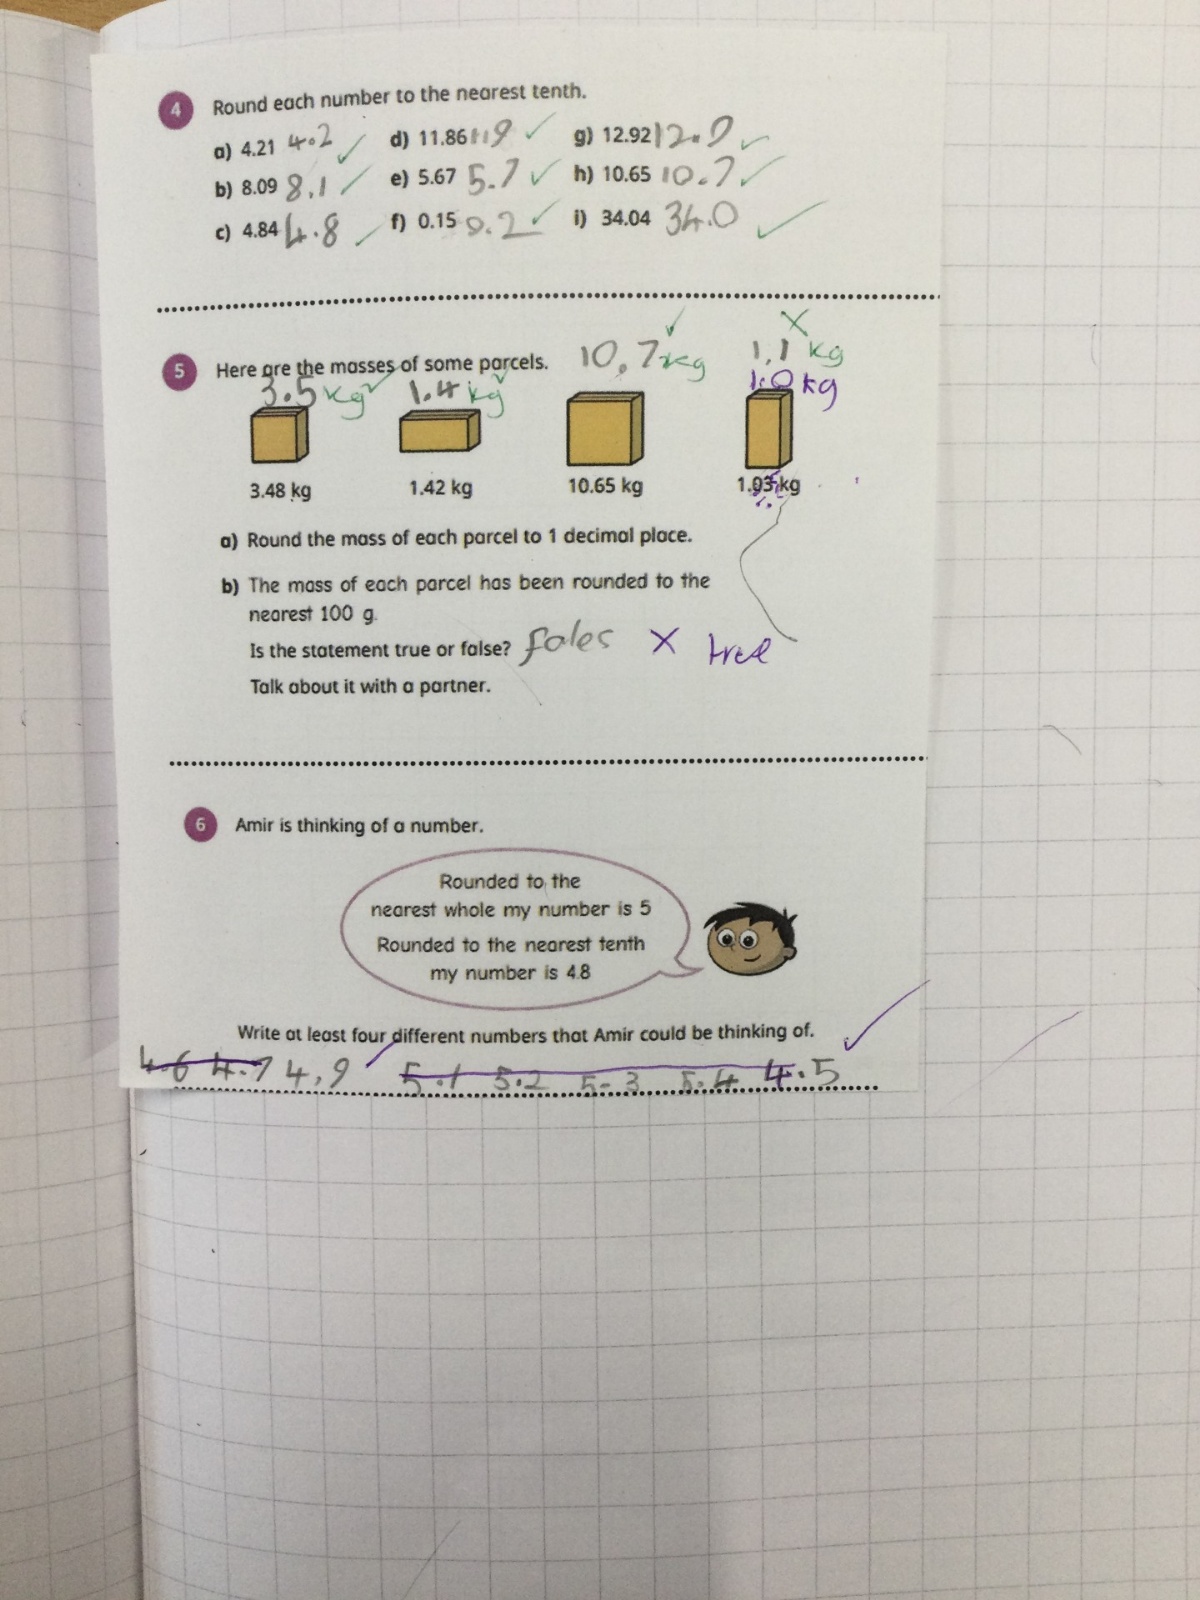 4 Round each number to the nearest tenth.
a) 4.21 4.2 ✓ d) 11.86 11.9 ✓ g) 12.92 12.9 ✓
b) 8.09 8.1 ✓ e) 5.67 5.7 ✓ h) 10.65 10.7 ✓
c) 4.84 4.8 ✓ f) 0.15 0.2 ✓ i) 34.04 34.0 ✓
5 Here are the masses of some parcels.
3.5 kg ✓ 1.4 kg ✓ 10.7 kg ✓ 1.1 kg X
1.0 kg
3.48 kg 1.42 kg 10.65 kg 1.03 kg
a) Round the mass of each parcel to 1 decimal place.
b) The mass of each parcel has been rounded to the
nearest 100 g.
Is the statement true or false? fales X true
Talk about it with a partner.
6 Amir is thinking of a number.
Rounded to the
nearest whole my number is 5
Rounded to the nearest tenth
my number is 4.8
Write at least four different numbers that Amir could be thinking of. ✓
4.6 4.7 4.9 5.1 5.2 5.3 5.4 4.5